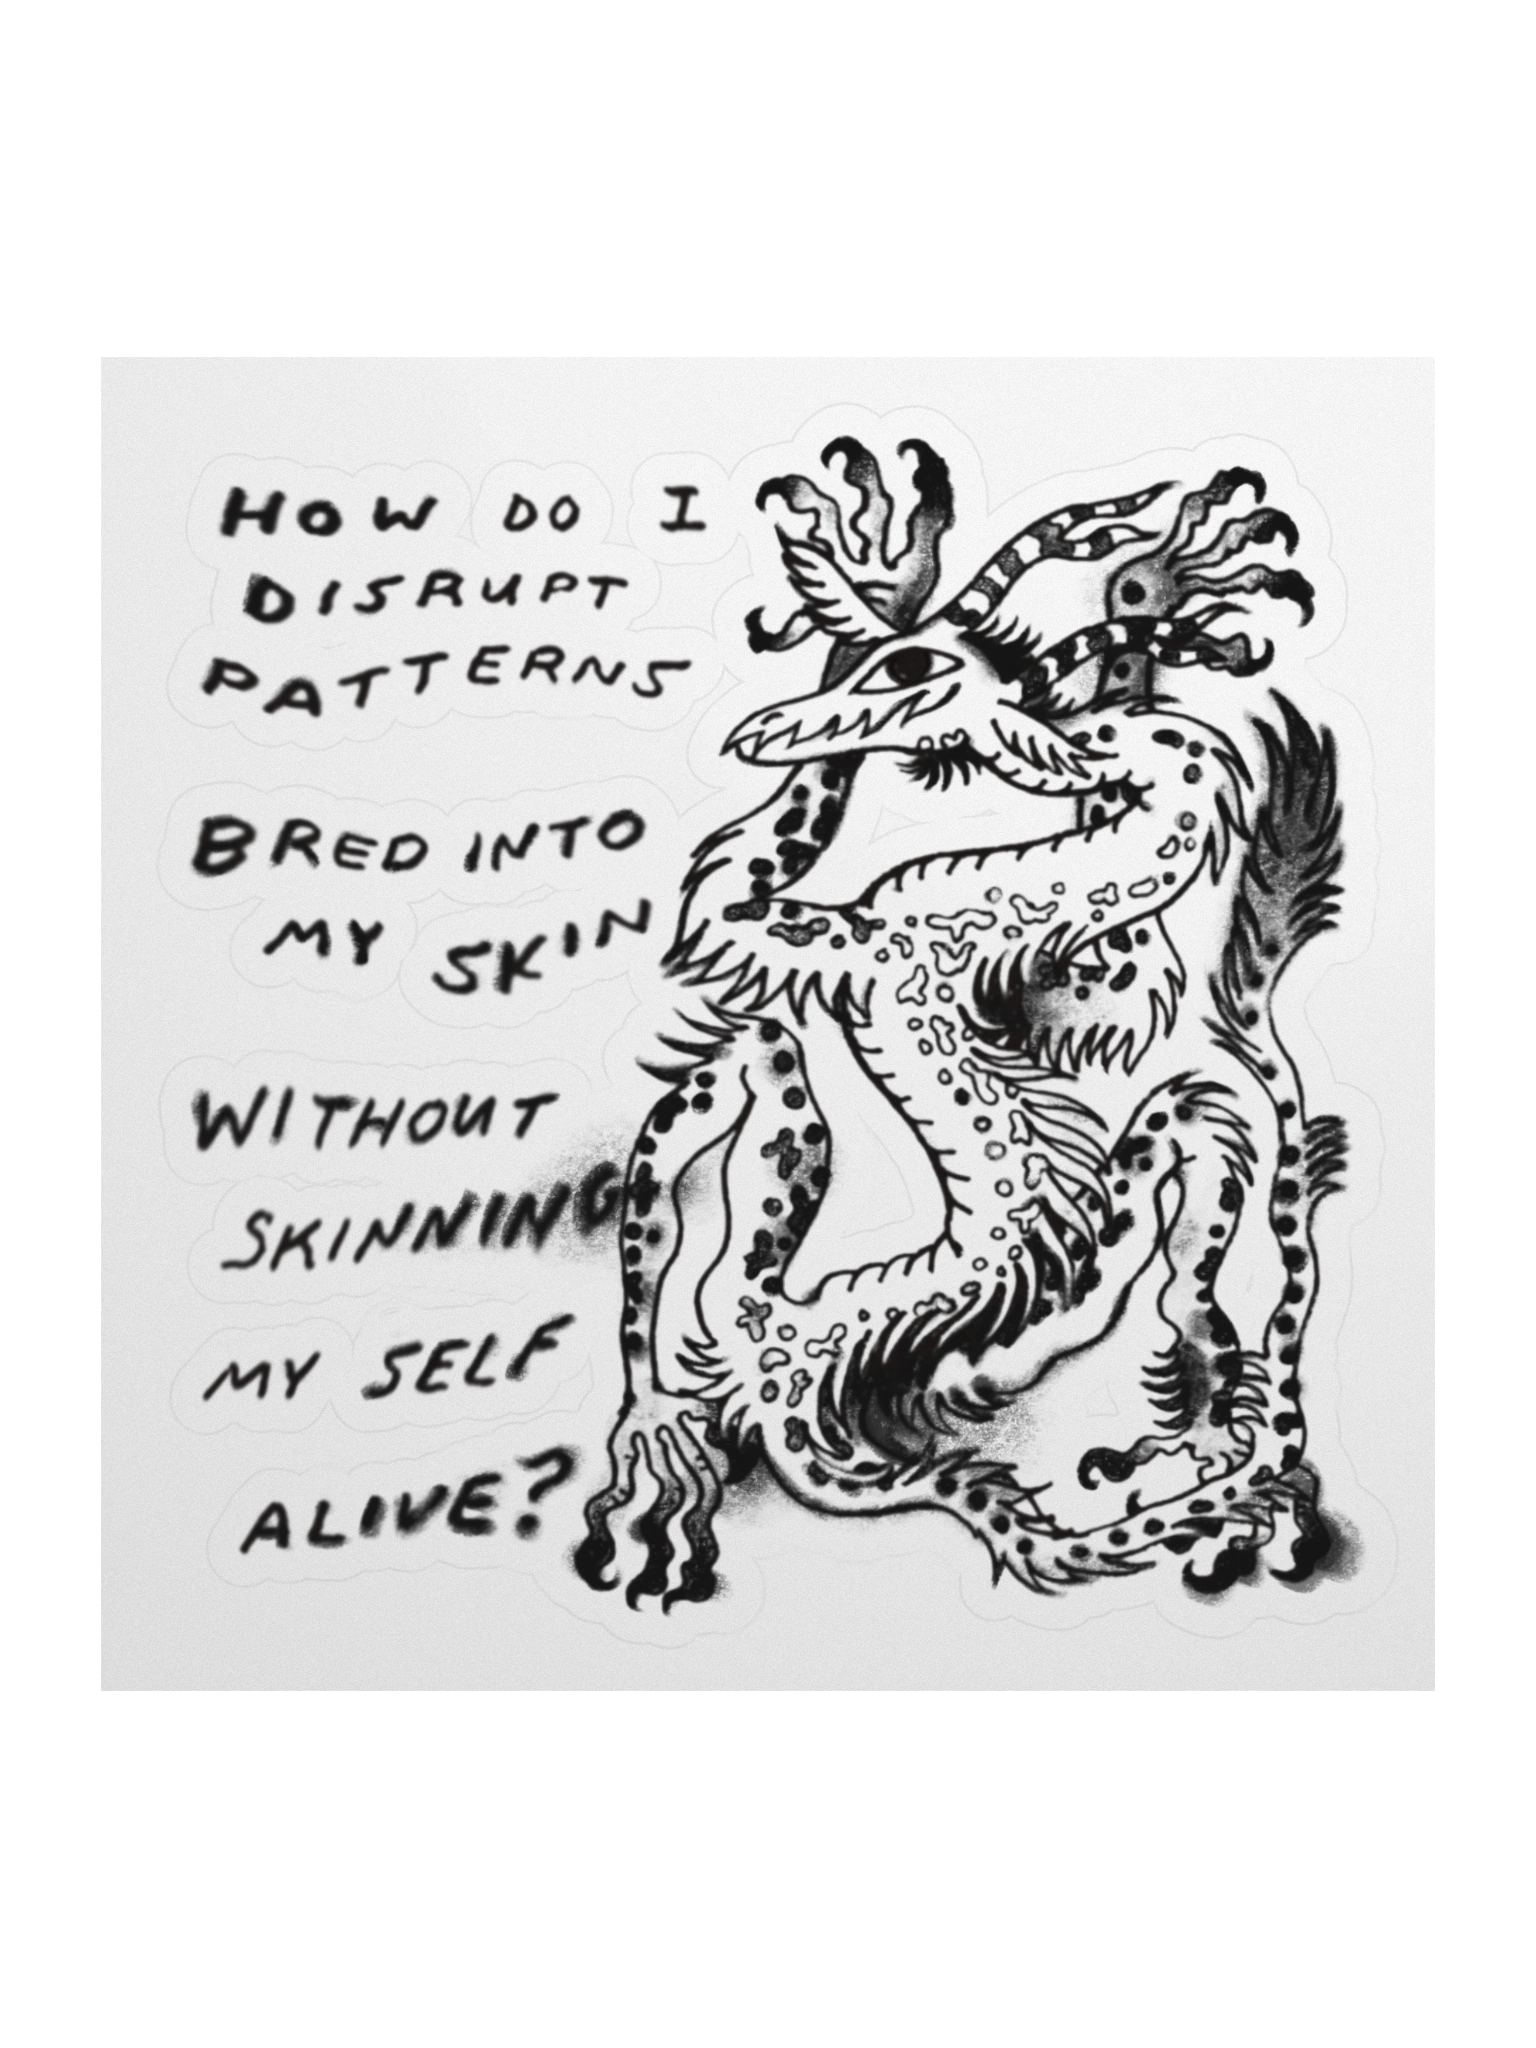 HOW DO I
DISRUPT
PATTERNS
BRED INTO
MY SKIN
WITHOUT
SKINNING
MY SELF
ALIVE?